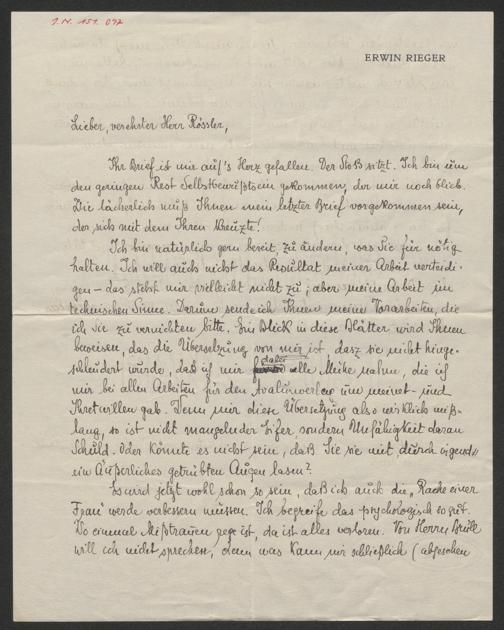 J.N. 151.092
ERWIN RIEGER
Lieber, verehrter Herr Rössler,
Ihr Brief ist mir auf's Herz gefallen. Der Stoß sitzt. Ich bin um
den geringen Rest Selbstbewußtsein gekommen, der mir noch blieb.
Wie lächerlich muß Ihnen mein letzter Brief vorgekommen sein,
der sich mit dem Ihren kreuzte!
Ich bin natürlich gern bereit, zu ändern, was Sie für nötig
halten. Ich will auch nicht das Resultat meiner Arbeit verteidi-
gen – das steht mir vielleicht nicht zu; aber meine Arbeit im
technischen Sinne. Darum sende ich Ihnen meine Vorarbeiten, die
ich Sie zu vernichten bitte. Ein Blick in diese Blätter wird Ihnen
beweisen, das die Übersetzung von mir ist, dasz sie nicht hinge-
schleudert wurde, daß ich mir dabei alle Mühe nahm, die ich
mir bei allen Arbeiten für den Avalunverlag um meinet- und
Ihretwillen gab. Wenn mir diese Übersetzung also wirklich miß-
lang, so ist nicht mangelnder Eifer sondern Unfähigkeit daran
Schuld. Oder könnte es nicht sein, daß Sie sie mit, durch irgend
ein Äußerliches getrübten Augen lasen?
Es wird jetzt wohl schon so sein, daß ich auch die „Rache einer
Frau" werde verbessern müssen. Ich begreife das psychologisch so gut.
Wo einmal Mißtrauen rege ist, da ist alles verloren. Von Herrn
will ich nicht sprechen, denn was kann mir schließlich (abgesehen